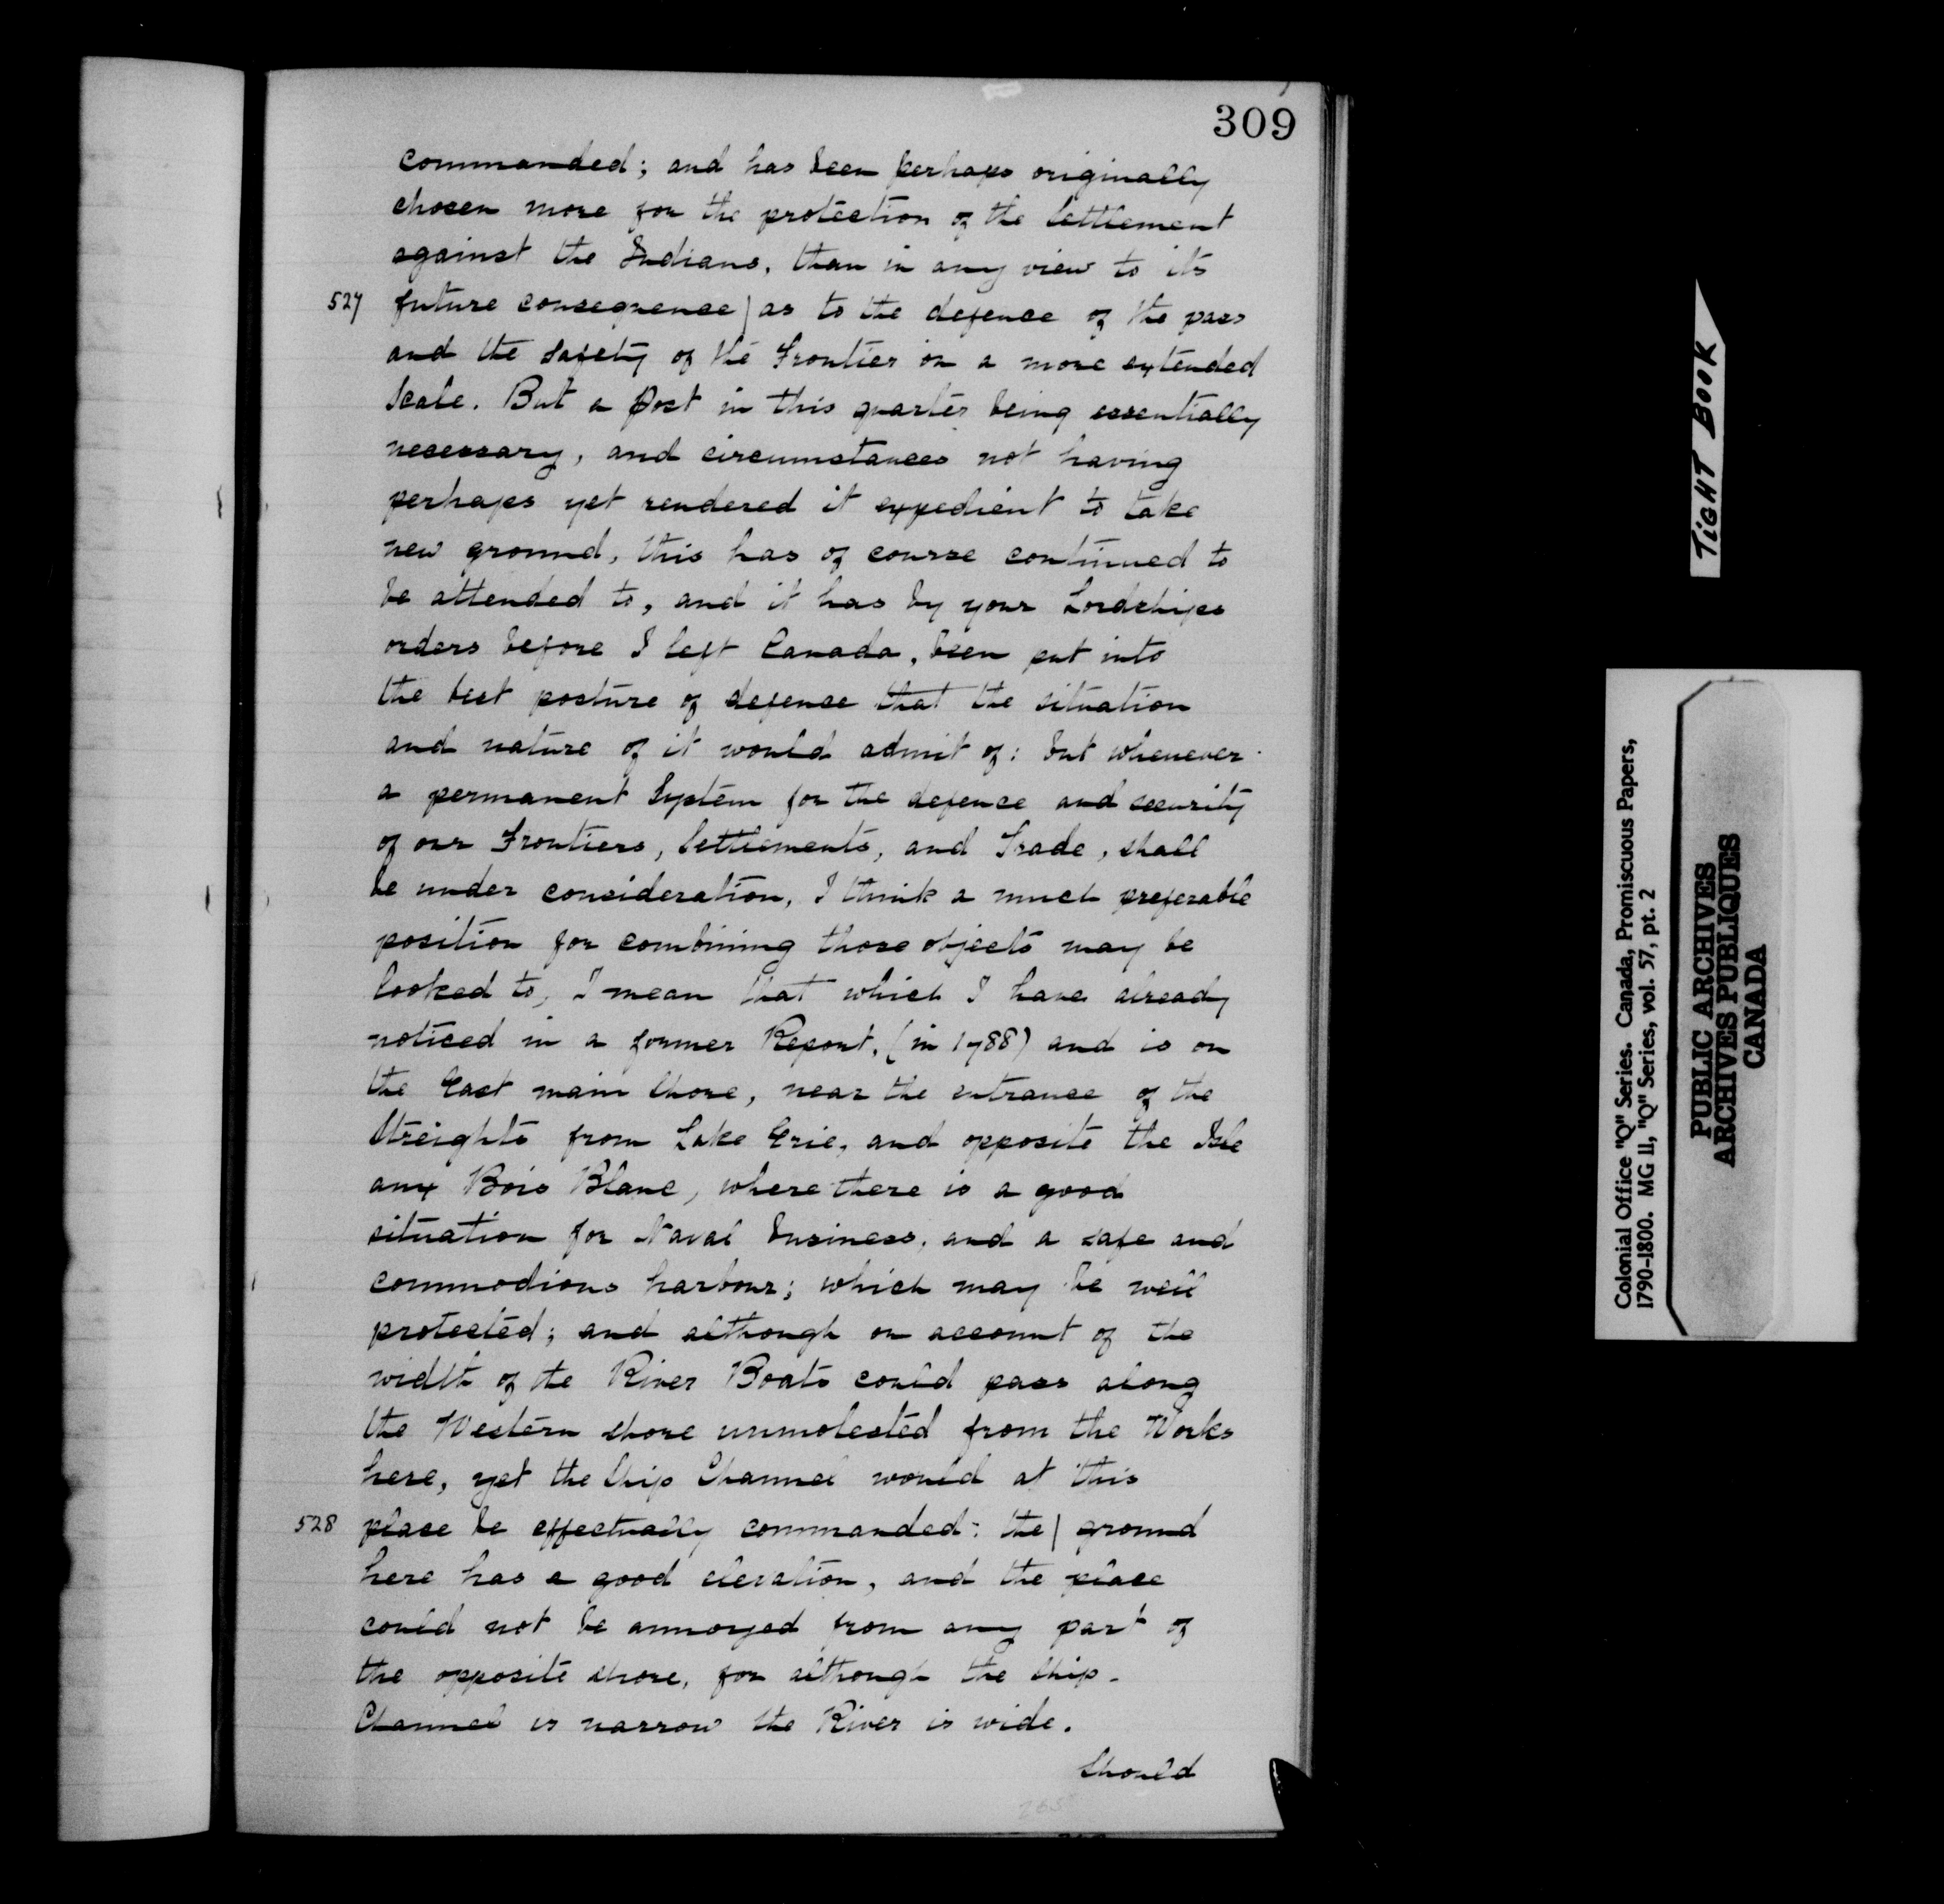 309
commanded; and has been perhaps originally
chosen more for the protection of the Settlement
against the Indians, than in any view to its
527 future consequence | as to the defence of the pass
and the Safety of the Frontier on a more extended
Scale. But a Post in this quarter being essentially
necessary, and circumstances not having
perhaps yet rendered it expedient to take
new ground, this has of course continued to
be attended to, and it has by your Lordships
orders before I left Canada, been put into
the best posture of defence that the situation
and nature of it would admit of: but whenever
a permanent System for the defence and security
of our Frontiers, Settlements, and Trade, shall
be under consideration, I think a much preferable
position for combining those objects may be
looked to, I mean that which I have already
noticed in a former Report, (in 1788) and is on
the East main Shore, near the entrance of the
Streights from Lake Erie, and opposite the Isle
aux Bois Blanc, where there is a good
situation for Naval business, and a safe and
commodious harbour; which may be well
protected; and although on account of the
width of the River Boats could pass along
the Western shore unmolested from the Works
here, yet the Ship Channel would at this
528 place be effectually commanded: the | ground
here has a good elevation, and the place
could not be annoyed from any part of
the opposite shore, for although the Ship-
Channel is narrow the River is wide.
Should
265
TIGHT BOOK
Colonial Office "Q" Series. Canada, Promiscuous Papers,
1790-1800. MG 11, "Q" Series, vol. 57, pt. 2
PUBLIC ARCHIVES
ARCHIVES PUBLIQUES
CANADA